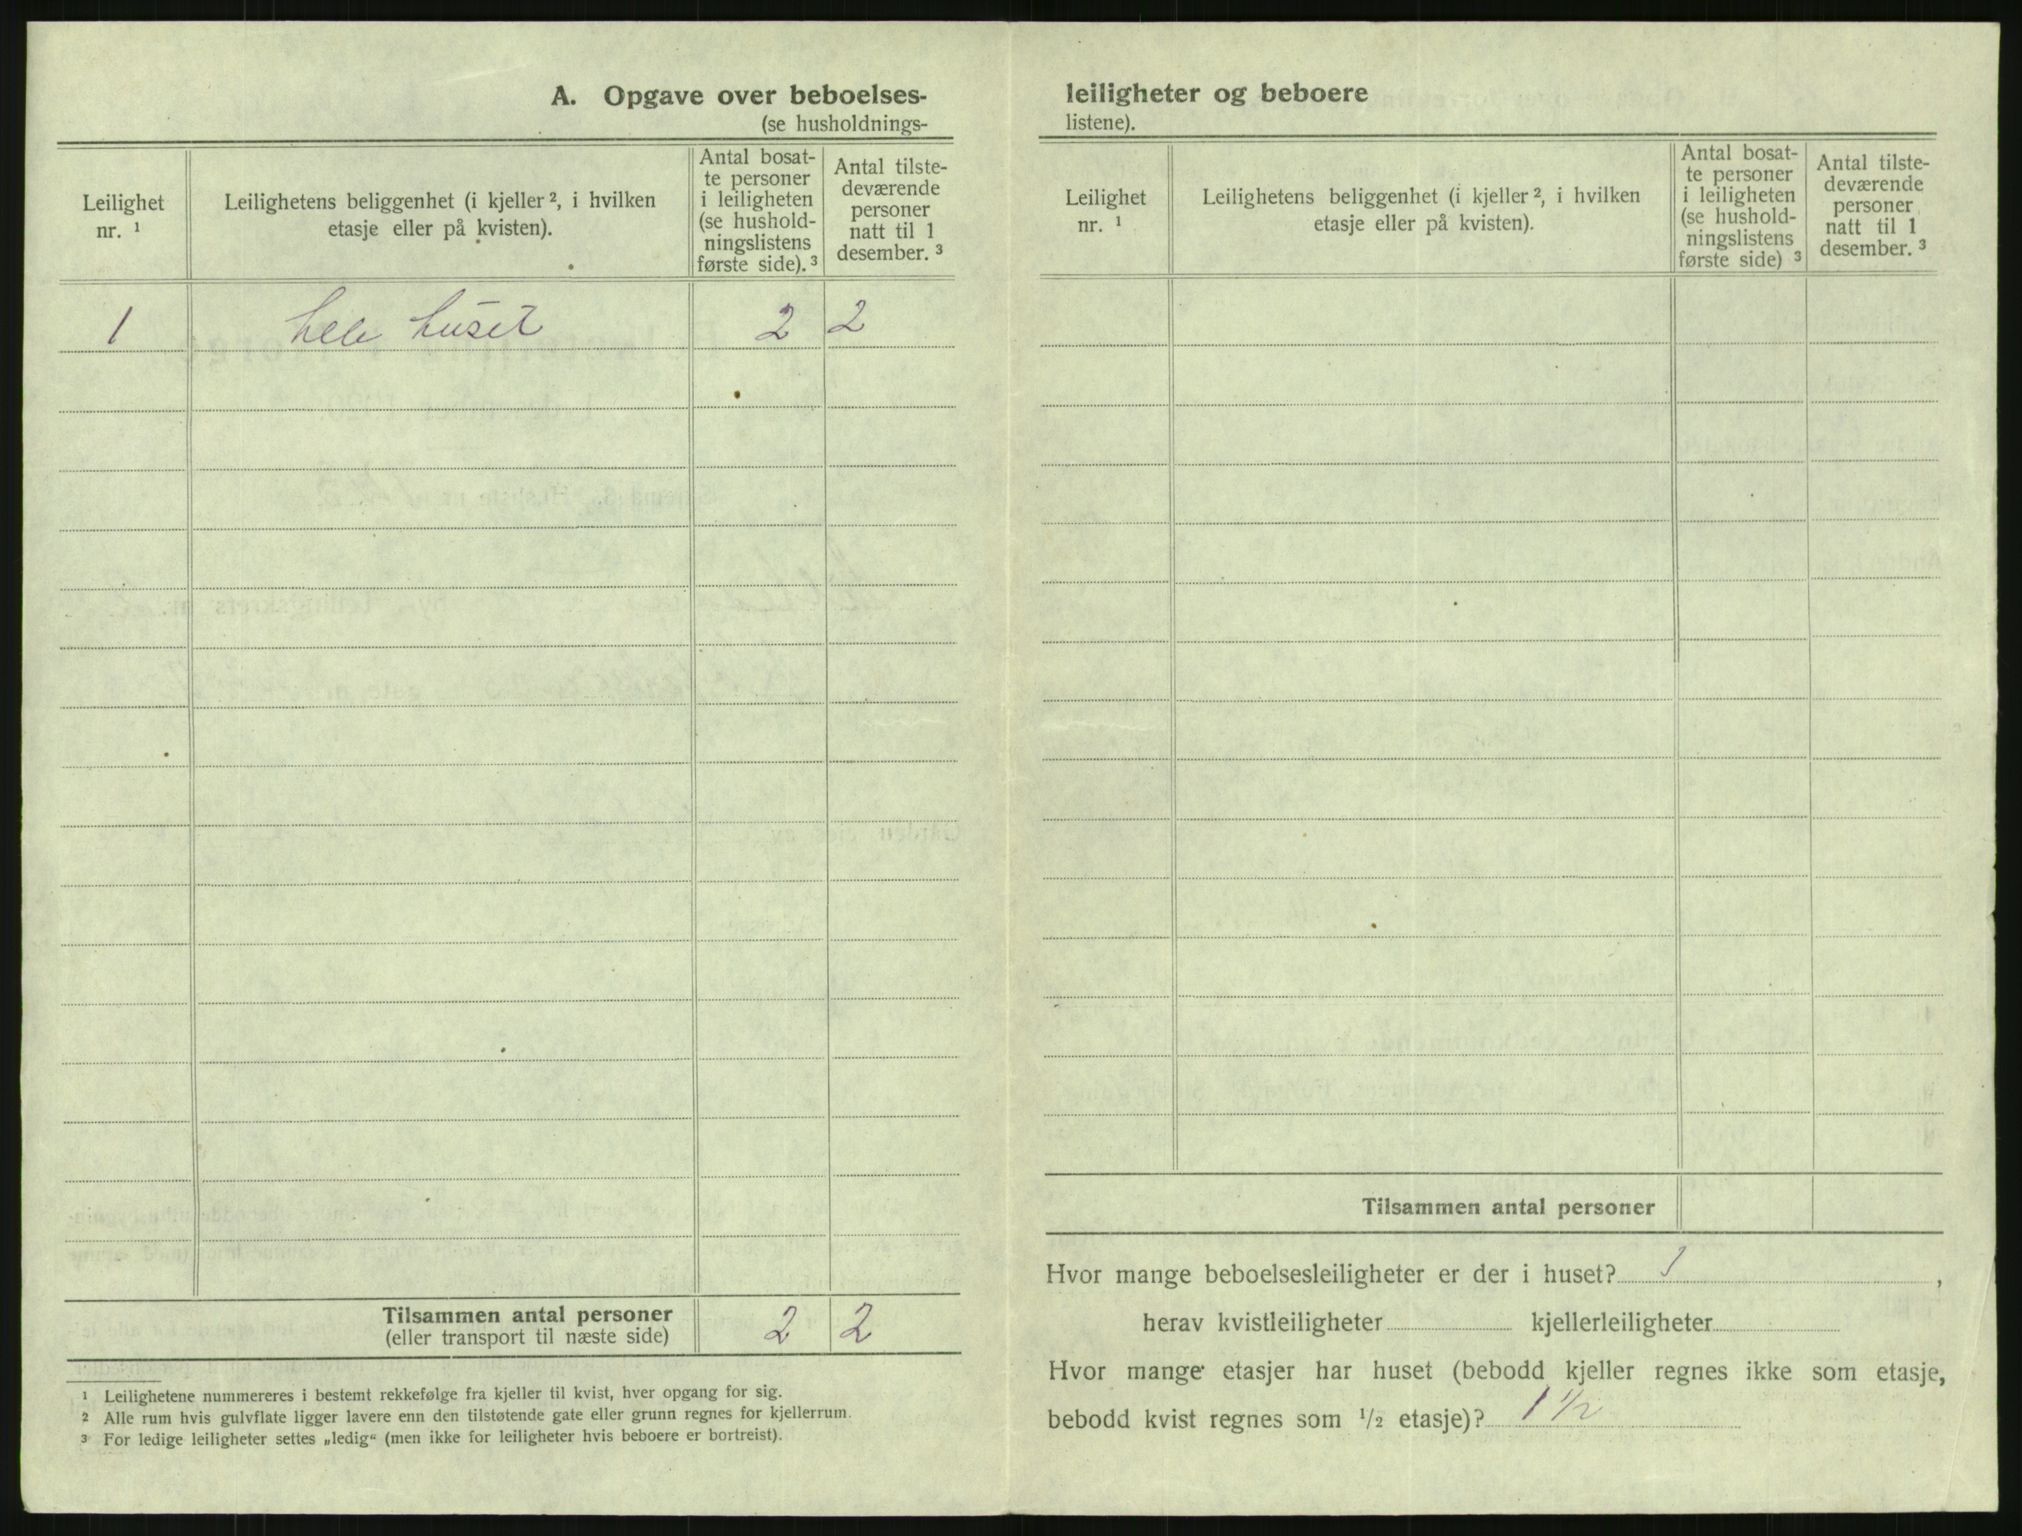 A. Opgave over beboelses-
(se husholdnings-
Leilighet
nr. ¹
Leilighetens beliggenhet (i kjeller ², i hvilken
etasje eller på kvisten).
Antal bosat-
te personer
i leiligheten
(se hushold-
ningslistens
første side). ³
Antal tilste-
deværende
personer
natt til 1
desember. ³
1 hele huset 2 2
Tilsammen antal personer 2 2
(eller transport til næste side)
¹ Leilighetene nummereres i bestemt rekkefølge fra kjeller til kvist, hver opgang for sig.
² Alle rum hvis gulvflate ligger lavere enn den tilstøtende gate eller grunn regnes for kjellerrum.
³ For ledige leiligheter settes „ledig“ (men ikke for leiligheter hvis beboere er bortreist).
leiligheter og beboere
listene).
Leilighet
nr. ¹
Leilighetens beliggenhet (i kjeller ², i hvilken
etasje eller på kvisten).
Antal bosat-
te personer
i leiligheten
(se hushold-
ningslistens
første side) ³
Antal tilste-
deværende
personer
natt til 1
desember. ³
Tilsammen antal personer
Hvor mange beboelsesleiligheter er der i huset? 1,
herav kvistleiligheter kjellerleiligheter
Hvor mange etasjer har huset (bebodd kjeller regnes ikke som etasje,
bebodd kvist regnes som ¹/₂ etasje)? 1 ½